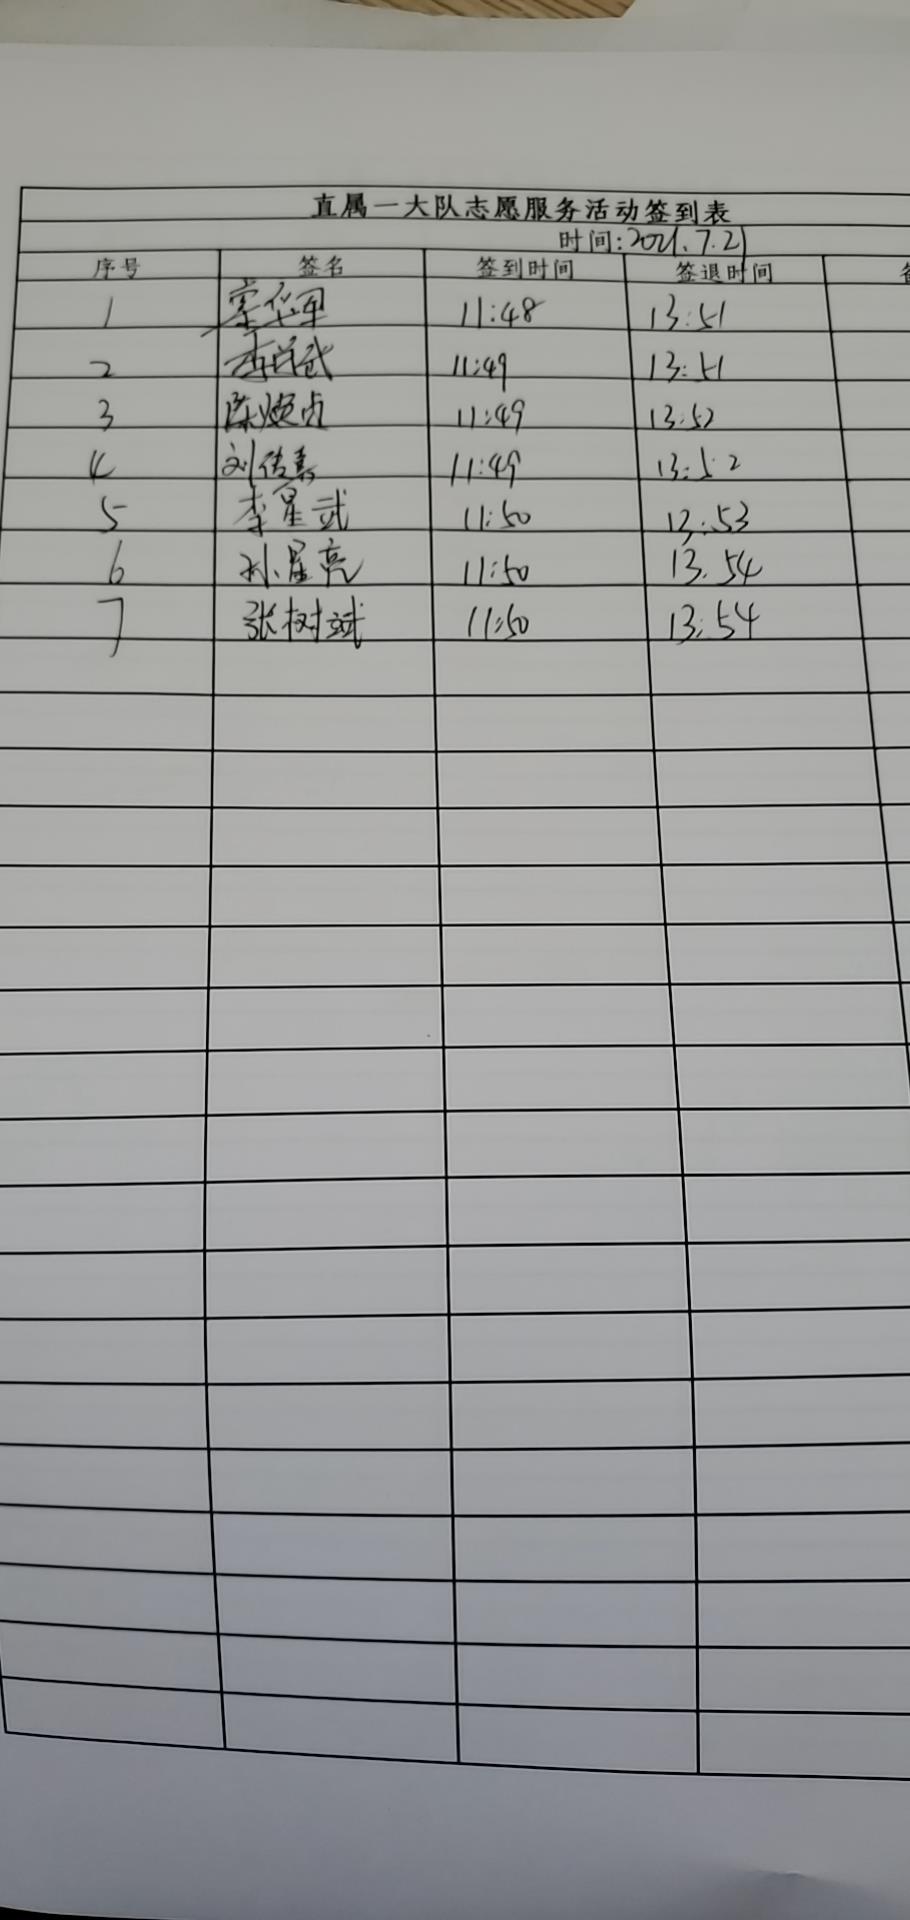 直属一大队志愿服务活动签到表
时间:2021.7.21
序号 签名 签到时间 签退时间
1 11:48 13:51
2 11:49 13:51
3 陈焕贞 11:49 13:52
4 刘传真 11:49 13:52
5 李星武 11:50 13:53
6 孙星亮 11:50 13.54
7 张树斌 11:50 13:54